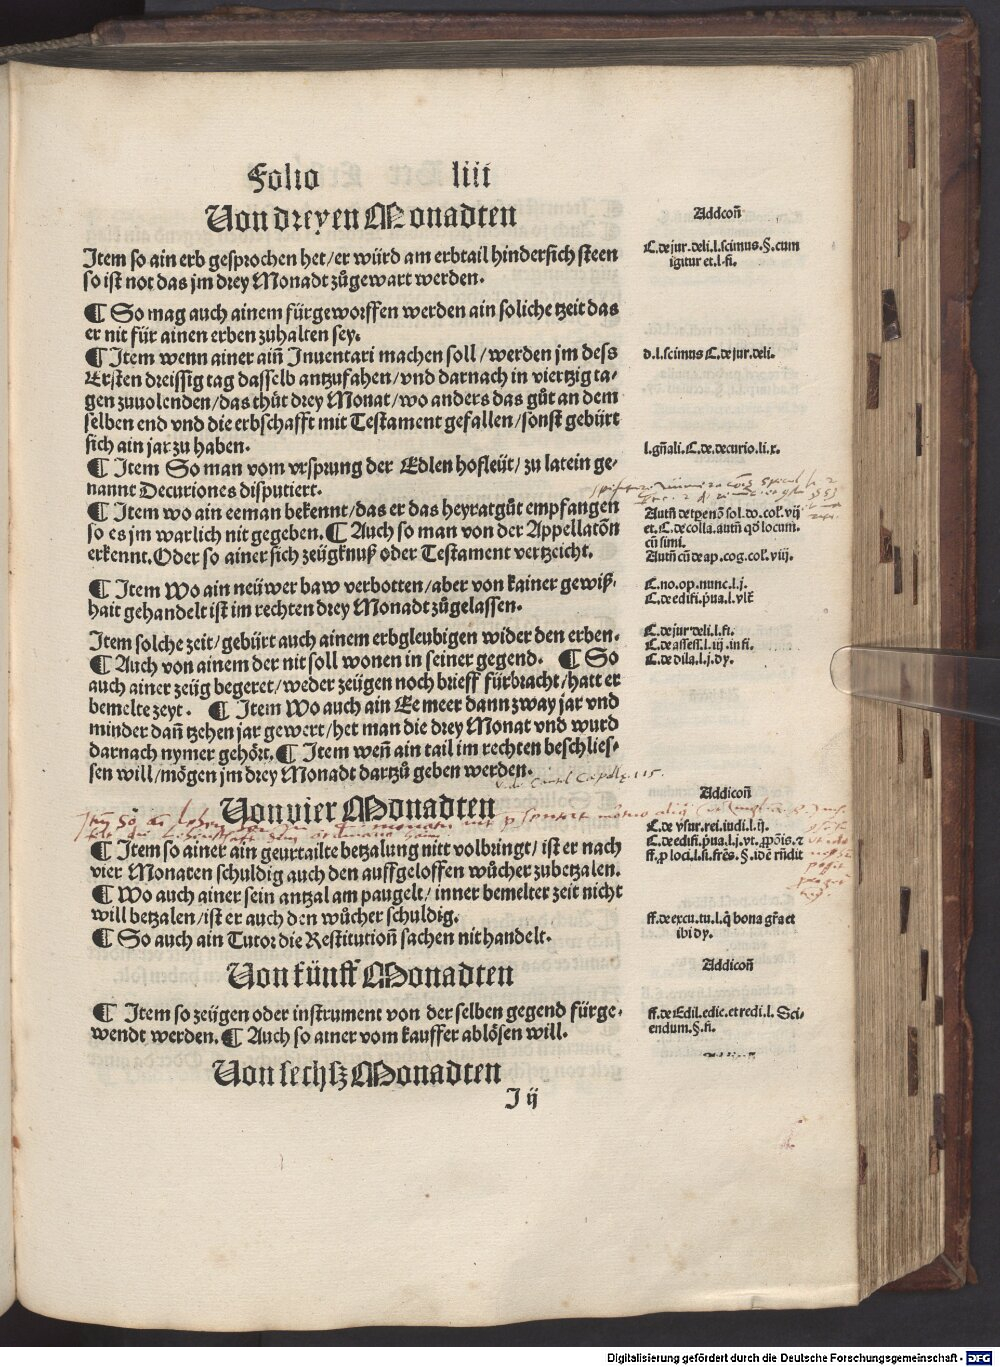 Folio liii
Von dreyen Monadten
Addicoñ
Item so ain erb gesprochen het/er würd am erbtail hindersich steen
so ist not das jm drey Monadt zůgewart werden.
C.de jur.deli.l.scimus.§.cum
igitur et.l.fi.
¶ So mag auch ainem fürgeworffen werden ain soliche tzeit das
er nit für ainen erben zuhalten sey.
¶ Item wenn ainer aiñ Inuentari machen soll/werden jm dess
Ersten dreissig tag dasselb antzufahen/vnd darnach in viertzig ta-
gen zuuolenden/das thůt drey Monat/wo anders das gůt an dem
selben end vnd die erbschafft mit Testament gefallen/sonst gebürt
sich ain jar zu haben.
d.l.scimus C.de jur.deli.
¶ Item So man vom vrsprung der Edlen hofleüt/zu latein ge-
nannt Decuriones disputiert.
l.gñali.C.de.decurio.li.x.
¶ Item wo ain eeman bekennt/das er das heyratgůt empfangen
so es jm warlich nit gegeben. ¶ Auch so man von der Appellatoñ
erkennt.Oder so ainer sich zeügknuß oder Testament vertzeicht.
et.C.de colla.autñ qd locum.
cū simi.
Autñ cū de ap.cog.col.viij.
¶ Item Wo ain neüwer baw verbotten/aber von kainer gewiß-
hait gehandelt ist im rechten drey Monadt zůgelassen.
C.no.op.nunc.l.j.
C.de edifi.pua.l.vlt
Item solche zeit/gebürt auch ainem erbgleubigen wider den erben.
¶ Auch von ainem der nit soll wonen in seiner gegend. ¶ So
auch ainer zeüg begeret/weder zeügen noch brieff fürbracht/hatt er
bemelte zeyt. ¶ Item Wo auch ain Ee meer dann zway jar vnd
minder dañ tzehen jar gewert/het man die drey Monat vnd wurd
darnach nymer gehört. ¶ Item weñ ain tail im rechten beschlies-
sen will/mögen jm drey Monadt dartzů geben werden.
C.de jur deli.l.fi.
C.de assess.l.iij.in fi.
C.de dila.l.j.dy.
Von vier Monadten
Addicoñ
¶ Item so ainer ain geurtailte betzalung nitt volbringt/ist er nach
vier Monaten schuldig auch den auffgeloffen wůcher zubetzalen.
¶ Wo auch ainer sein antzal am paugelt/inner bemelter zeit nicht
will betzalen/ist er auch den wůcher schuldig.
¶ So auch ain Tutor die Restitutioñ sachen nit handelt.
C.de vsur.rei.iudi.l.ij.
ff.de excu.tu.l.q̃ bona gr̃a et
ibi dy.
Von fünff Monadten
Addicoñ
¶ Item so zeügen oder instrument von der selben gegend fürge-
wendt werden. ¶ Auch so ainer vom kauffer ablösen will.
ff.de Edil.edic.et redi.l.Sci-
endum.§.fi.
Von sechsz Monadten
I ij
Digitalisierung gefördert durch die Deutsche Forschungsgemeinschaft - DFG